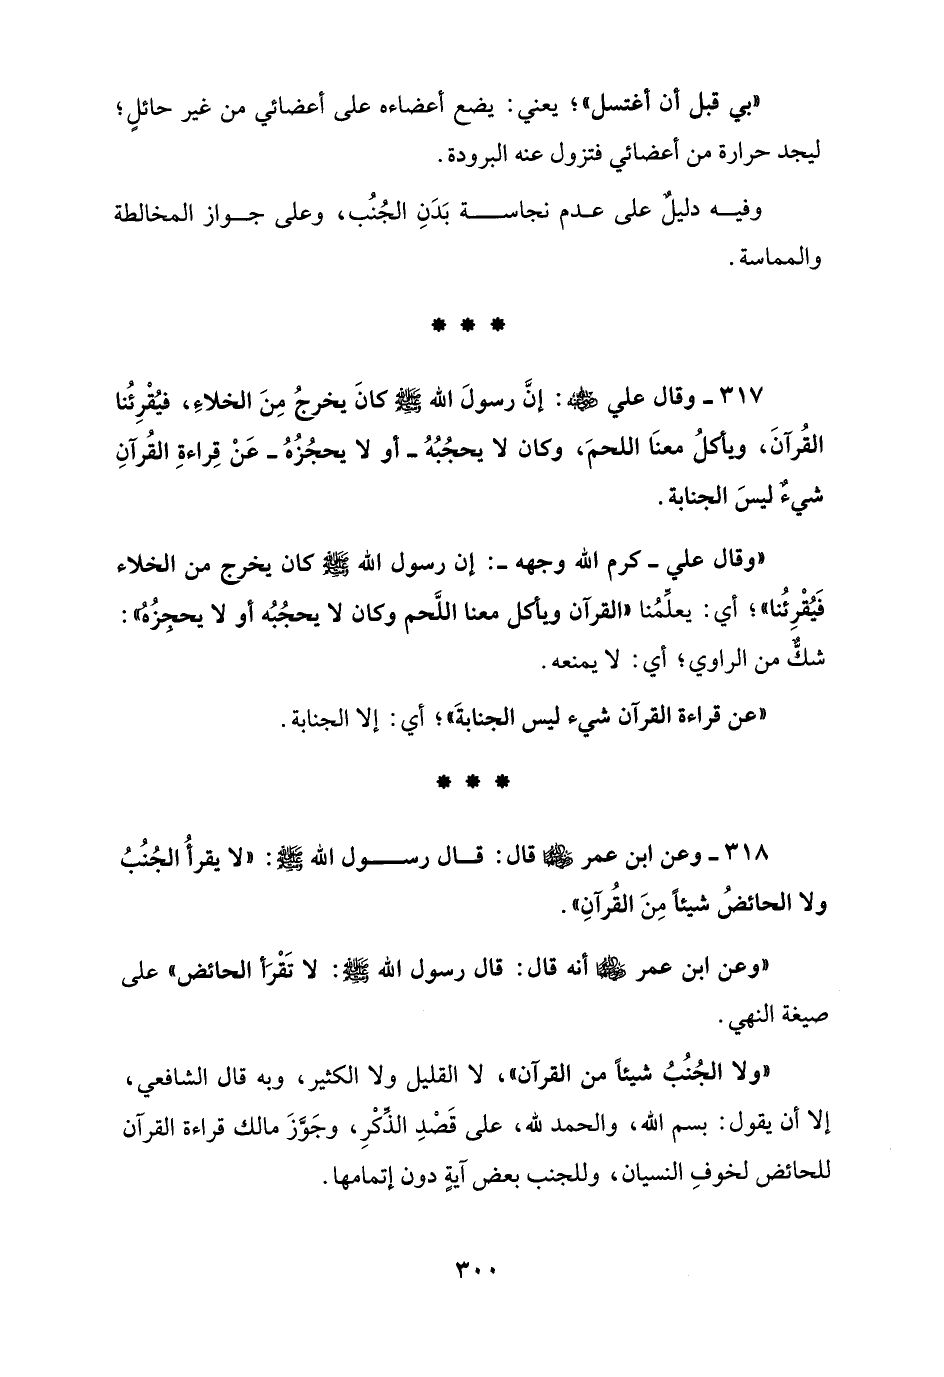 «بي قبل أن أغتسل»؛ يعني: يضع أعضاءه على أعضائي من غير حائلٍ؛
ليجد حرارة من أعضائي فتزول عنه البرودة.
وفيه دليلٌ على عدم نجاسة بَدَنِ الجُنُب، وعلى جواز المخالطة
والمماسة.
* * *
٣١٧ ـ وقال علي ﷺ: إنَّ رسولَ الله ﷺ كانَ يخرجُ مِنَ الخلاءِ، فيُقْرِئُنا
القُرآنَ، ويأكلُ معنَا اللحمَ، وكان لا يحجُبُهُ ـ أو لا يحجُزُهُ ـ عَنْ قِراءةِ القُرآنِ
شيءٌ ليسَ الجنابة.
«وقال علي ـ كرم الله وجهه ـ: إن رسول الله ﷺ كان يخرج من الخلاء
فَيُقْرِئُنا»؛ أي: يعلِّمُنا «القرآن ويأكل معنا اللَّحم وكان لا يحجُبُه أو لا يحجِزُهُ»:
شكٌّ من الراوي؛ أي: لا يمنعه.
«عن قراءة القرآن شيء ليس الجنابةَ»؛ أي: إلا الجنابة.
* * *
٣١٨ ـ وعن ابن عمر ﵄ قال: قال رسول الله ﷺ: «لا يقرأُ الجُنُبُ
ولا الحائضُ شيئاً مِنَ القُرآنِ».
«وعن ابن عمر ﵄ أنه قال: قال رسول الله ﷺ: لا تَقْرَأ الحائض» على
صيغة النهي.
«ولا الجُنُبُ شيئاً من القرآن»، لا القليل ولا الكثير، وبه قال الشافعي،
إلا أن يقول: بسم الله، والحمد لله، على قَصْدِ الذِّكْرِ، وجَوَّزَ مالك قراءة القرآن
للحائض لخوفِ النسيان، وللجنب بعض آيةٍ دون إتمامها.
٣٠٠